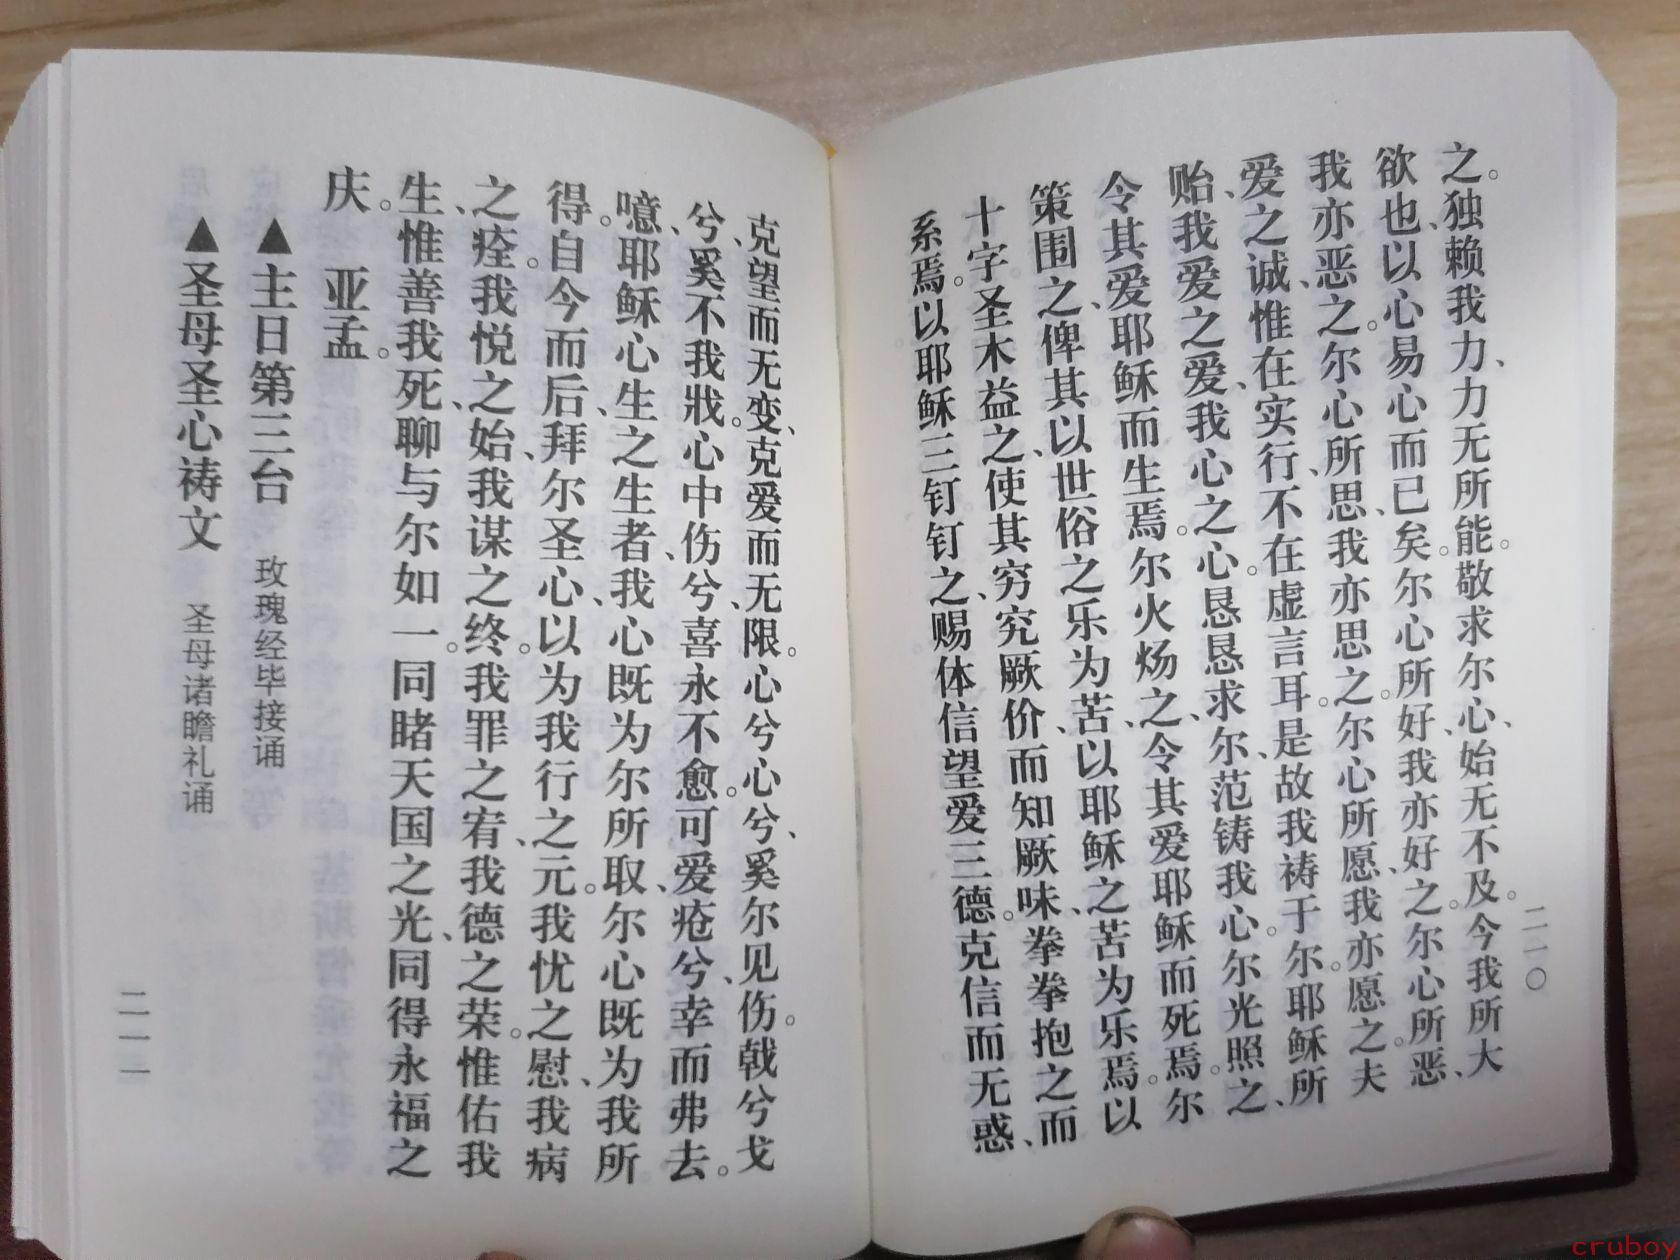 之。独赖我力、力无所能。敬求尔心、始无不及。今我所大
欲也、以心易心而已矣。尔心所好、我亦好之。尔心所恶、
我亦恶之。尔心所思、我亦思之。尔心所愿、我亦愿之。夫
爱之诚、惟在实行、不在虚言耳。是故我祷于尔。耶稣所
贻、我爱之爱、我心之心。恳恳求尔、范铸我心。尔光照之、
令其爱耶稣而生焉。尔火炀之、令其爱耶稣而死焉。尔
策围之、俾其以世俗之乐为苦、以耶稣之苦为乐焉。以
十字圣木益之、使其穷究厥价、而知厥味、拳拳抱之而
系焉。以耶稣三钉钉之、赐体信望爱三德。克信而无惑、
二一〇
克望而无变、克爱而无限。心兮心兮、奚尔见伤。戟兮戈
兮、奚不我戕。心中伤兮、喜永不愈。可爱疮兮、幸而弗去。
噫、耶稣心生之生者、我心既为尔所取、尔心既为我所
得。自今而后、拜尔圣心、以为我行之元。我忧之慰、我病
之痊。我悦之始、我谋之终。我罪之宥、我德之荣。惟佑我
生、惟善我死、聊与尔如一。同睹天国之光、同得永福之
庆。 亚孟。
▲主日第三台 玫瑰经毕接诵
▲圣母圣心祷文 圣母诸瞻礼诵
二一一
cruboy